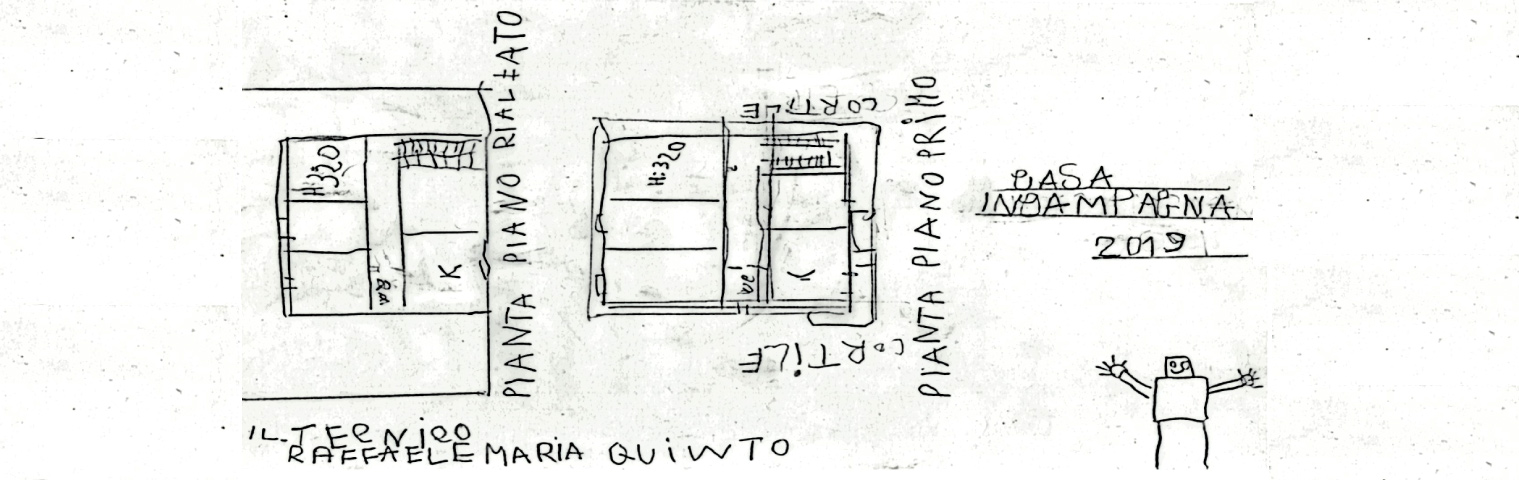 PIANTA PIANO RIALZATO
H:320
K
CORTILE
H:320
K
CORTILE
PIANTA PIANO PRIMO
CASA
INCAMPAGNA
2019
IL TECNICO
RAFFAELE MARIA QUINTO